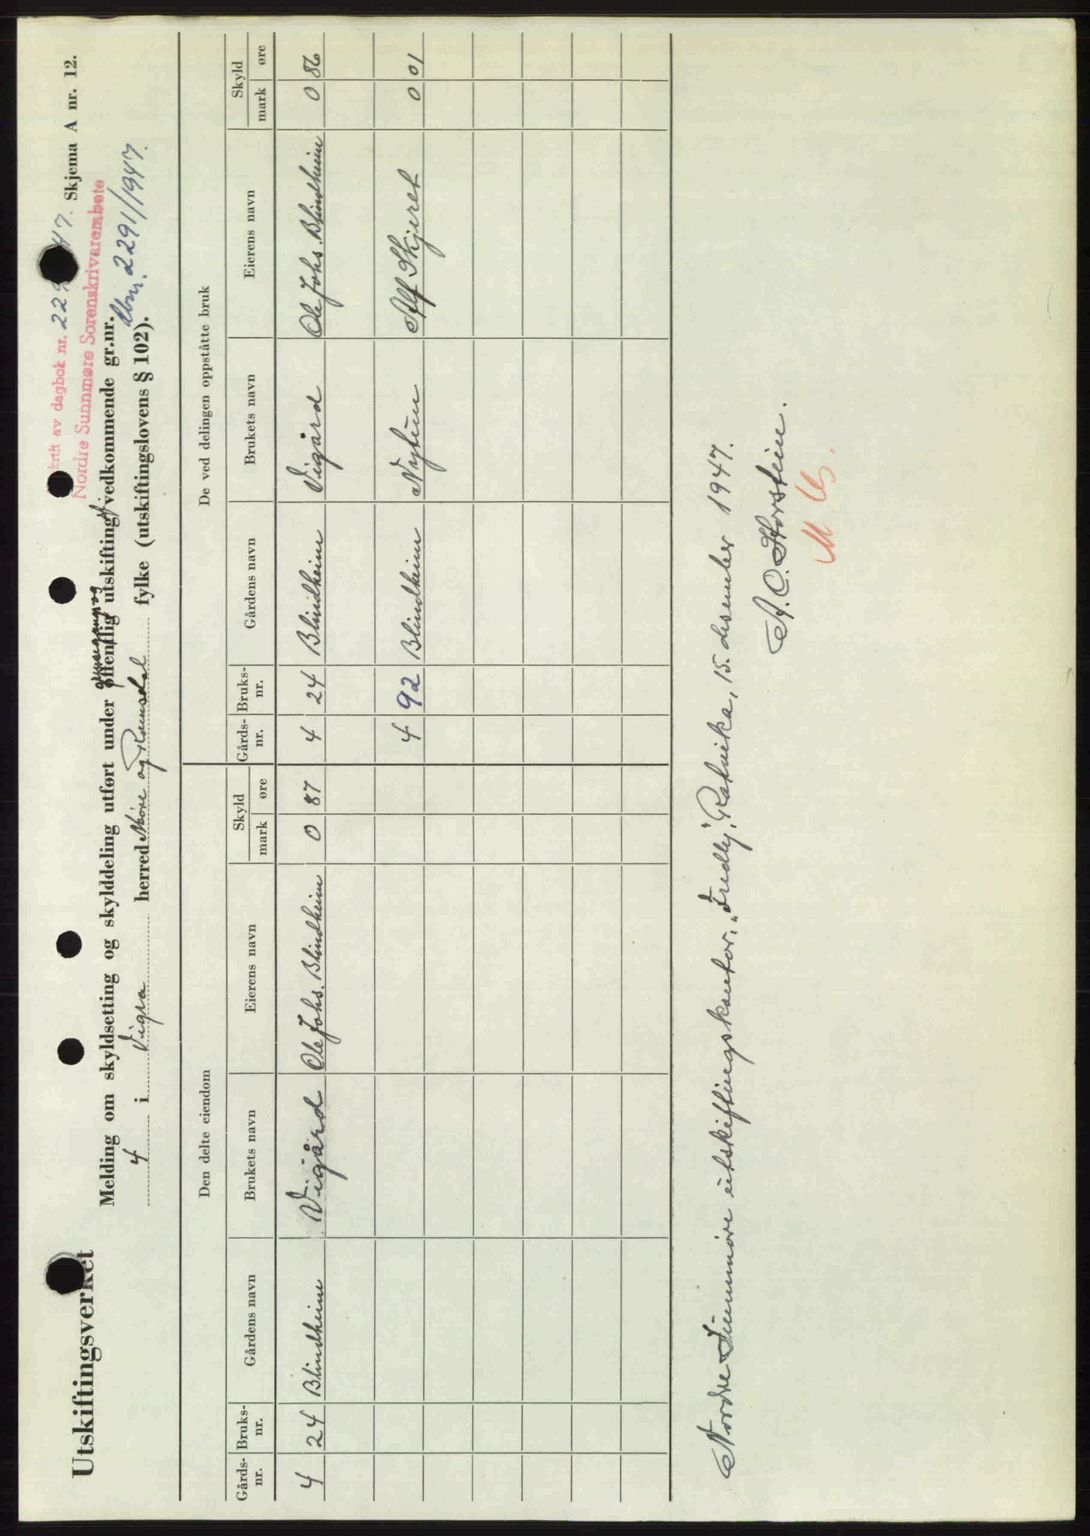 Utskiftingsverket
Skjema A nr. 12.
av dagbok nr. 22 47.
Nordre Sunnmøre Sorenskrivarembete
Melding om skyldsetting og skylddeling utført under offentlig utskifting vedkommende gr.nr.
2291/1947.
4 i Vigra herred Møre og Romsdal fylke (utskiftingslovens § 102).
Den delte eiendom De ved delingen oppståtte bruk
Gårds-nr. Bruks-nr. Gårdens navn Brukets navn Eierens navn Skyld mark øre Gårds-nr. Bruks-nr. Gårdens navn Brukets navn Eierens navn Skyld mark øre
4 24 Blindheim Vigård Ole Johs. Blindheim 0 87 4 24 Blindheim Vigård Ole Johs. Blindheim 0 86
4 92 Blindheim Nytun Alf Skjeret 0 01
Nordre Sunnmøre utskiftingskontor, "Fredly", Ratvika, 15. desember 1947.